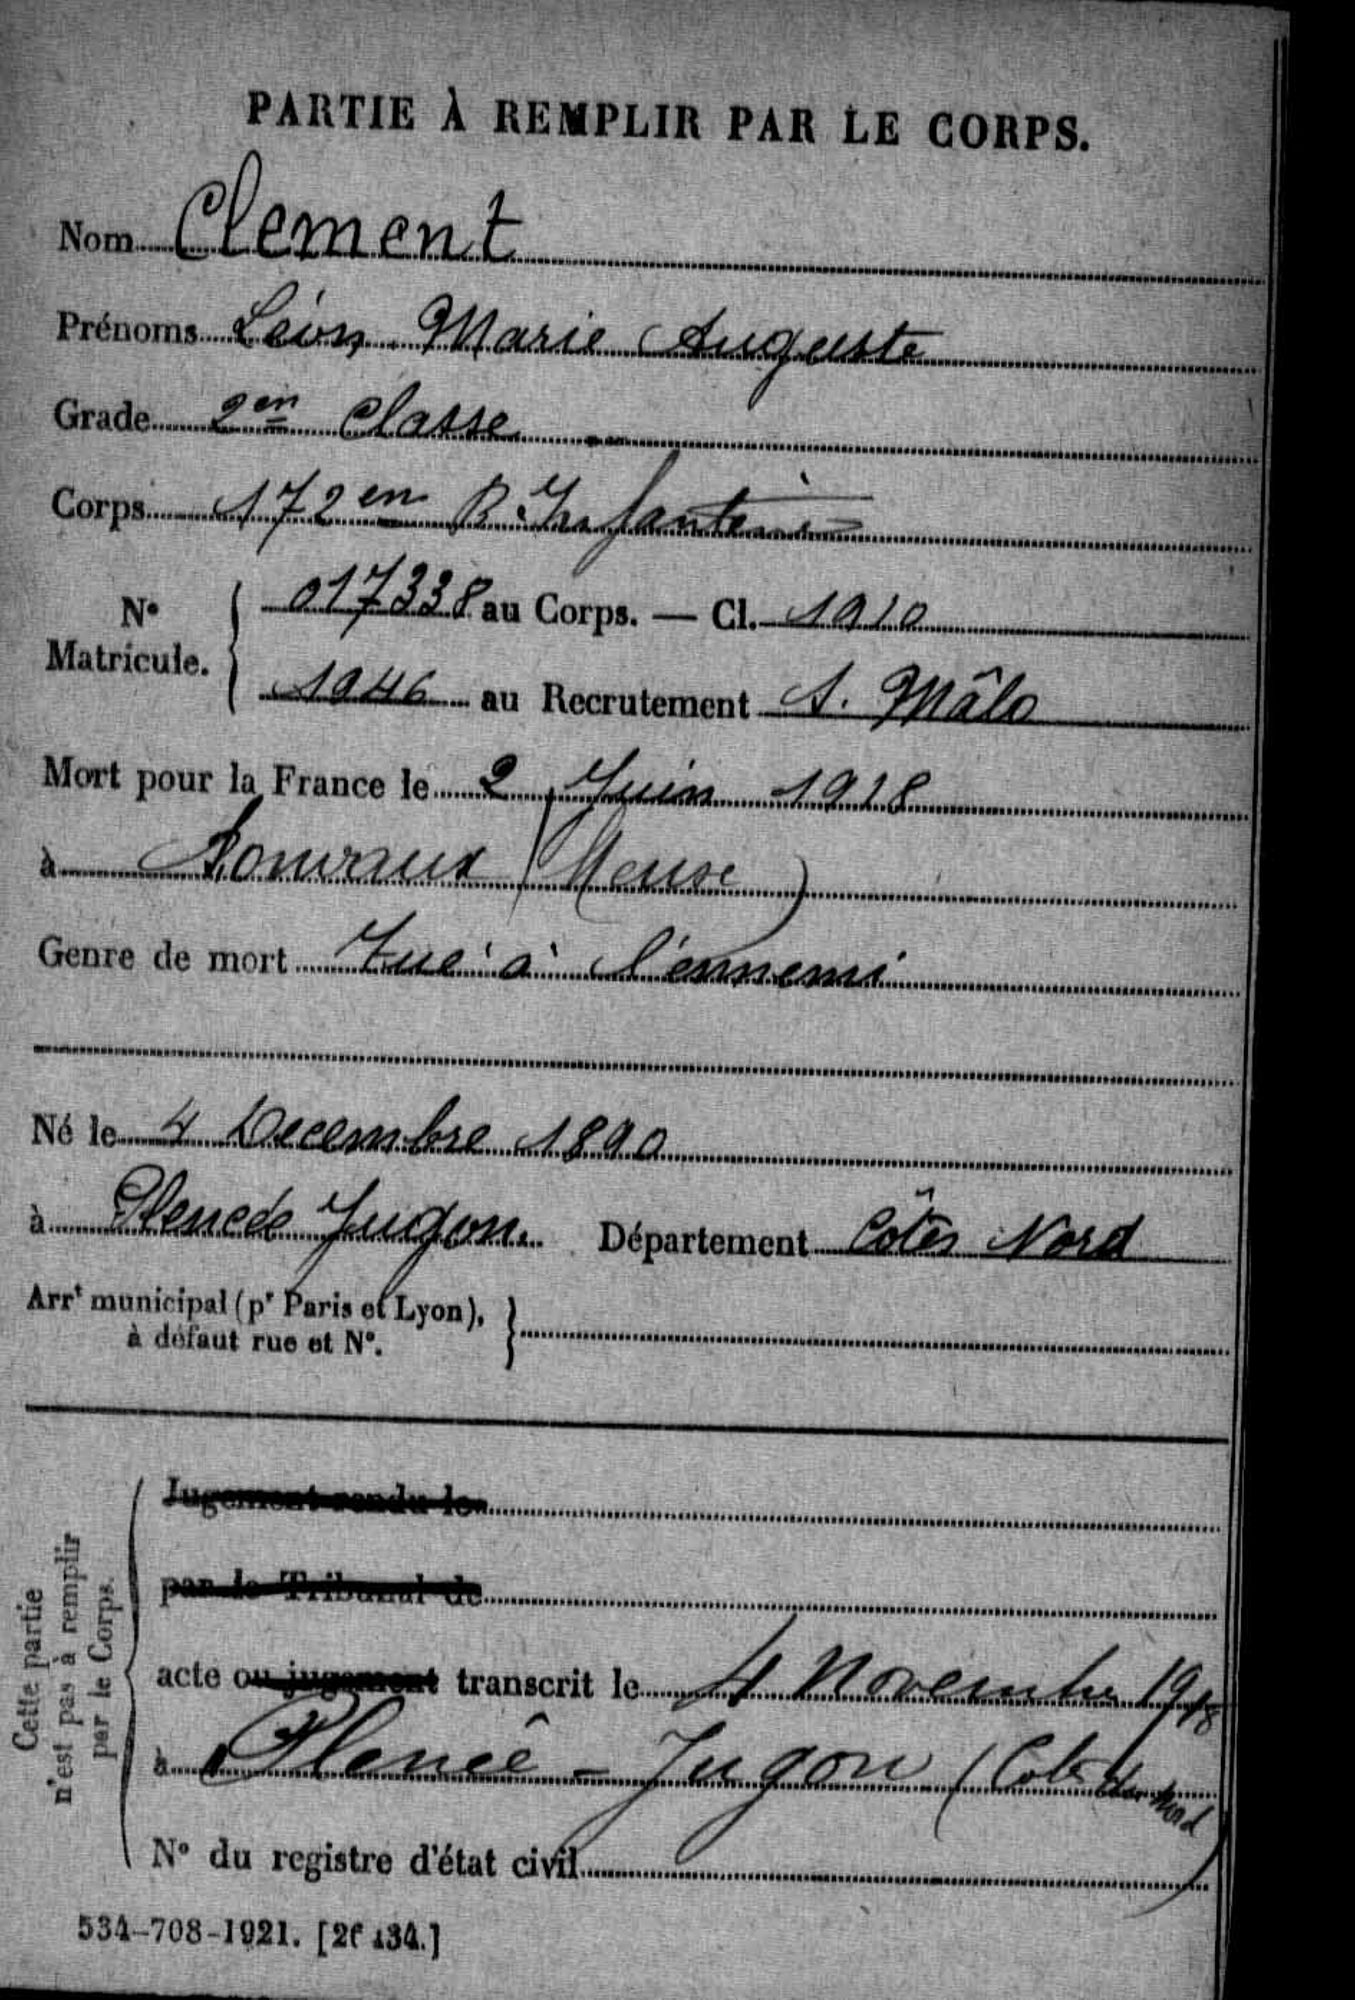 PARTIE À REMPLIR PAR LE CORPS.
Nom Clement
Prénoms Léon Marie Auguste
Grade 2en classe
Corps 172en R. Infanterie
N° Matricule. { 017338 au Corps. — Cl. 1910
1946 au Recrutement S. Mâlo
Mort pour la France le 2 Juin 1918
à Ronvaux (Meuse)
Genre de mort Tué à l'ennemi
Né le 4 Decembre 1890
à Plenée Jugon. Département Côtes Nord
Arrt municipal (pr Paris et Lyon),
à défaut rue et N°. }
Cette partie
n'est pas à remplir
par le Corps.
Jugement rendu le
par le Tribunal de
acte ou jugement transcrit le 4 Novembre 1918
à Plenée-Jugon (Cotes du Nord)
N° du registre d'état civil
534-708-1921. [26434.]